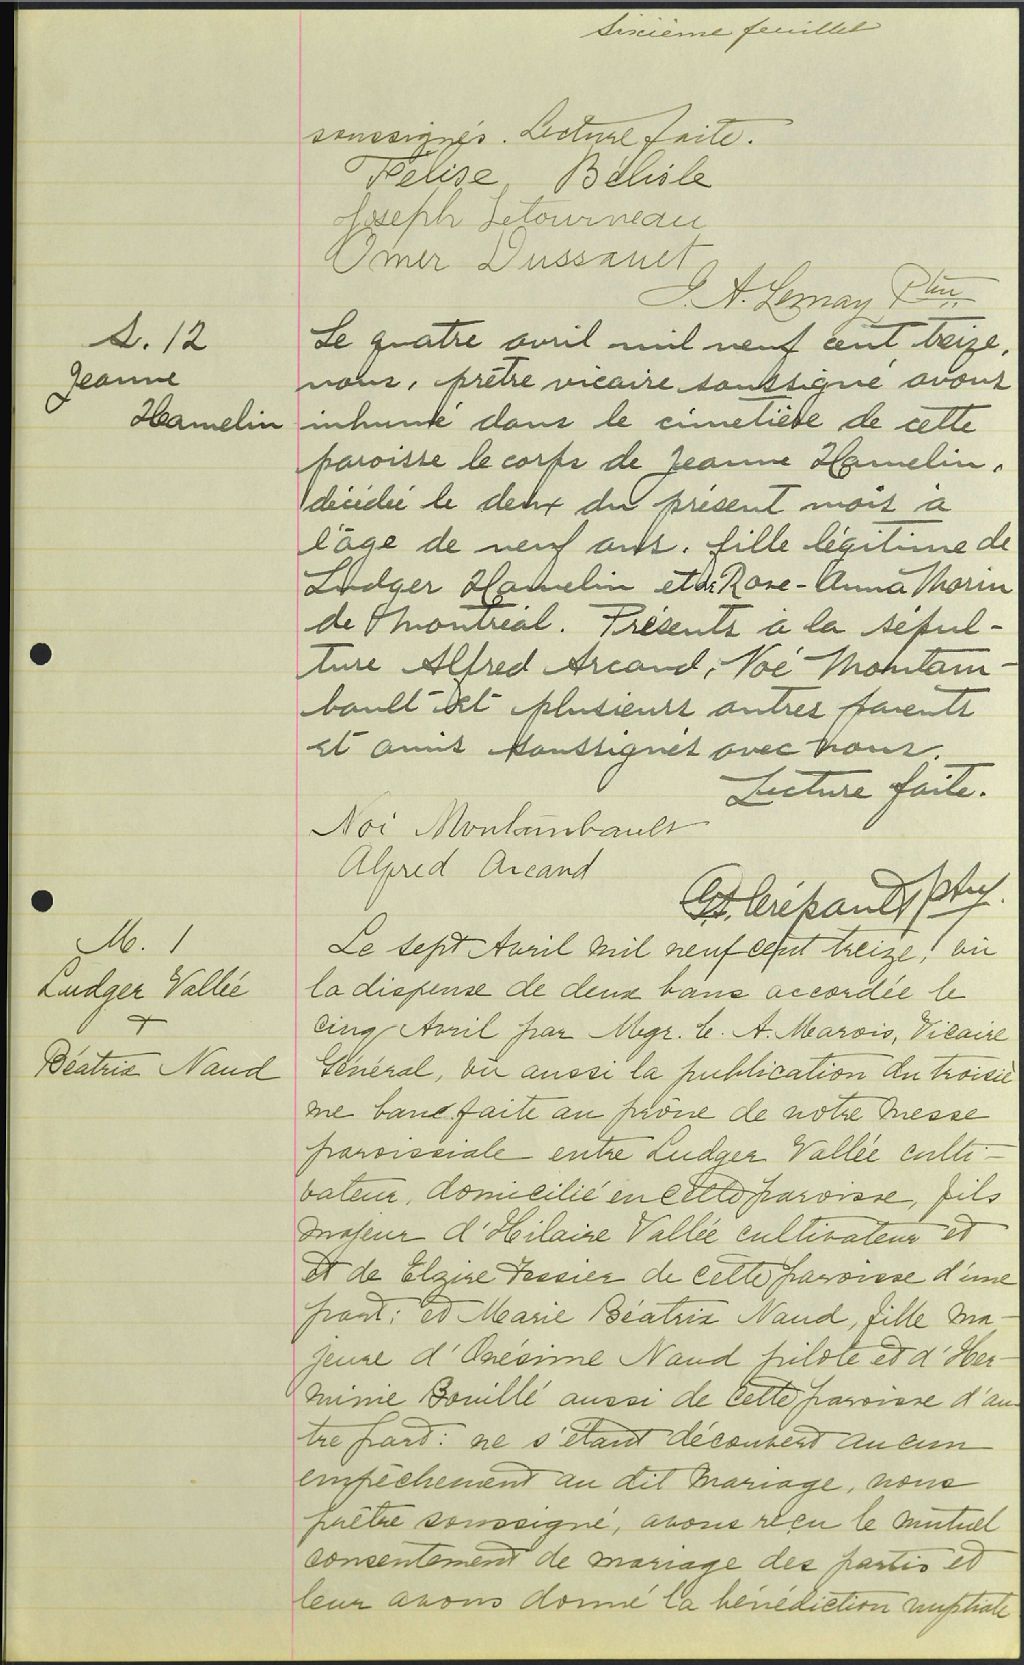 Sixième feuillet
soussignés. Lecture faite.
Félise Bélisle
Joseph Letourneau
Omer Dussault
J. A. Lemay Ptre
S. 12
Jeanne
Hamelin
Le quatre avril mil neuf cent treize,
nous, prêtre vicaire soussigné avons
inhumé dans le cimetière de cette
paroisse le corps de Jeanne Hamelin,
décédée le deux du présent mois à
l'âge de neuf ans, fille légitime de
Ludger Hamelin et de Rose-Anna Morin
de Montréal. Présents à la sépul-
ture Alfred Arcand, Noé Montam-
bault et plusieurs autres parents
et amis soussignés avec nous.
Lecture faite.
Noé Montambault
Alfred Arcand
Crépault ptre.
M. 1
Ludger Vallée
+
Béatrix Naud
Le sept Avril mil neuf cent treize, vu
la dispense de deux bans accordée le
cinq Avril par Mgr. C. A. Marois, Vicaire
Général, vu aussi la publication du troisiè
me banc faite au prône de notre messe
paroissiale entre Ludger Vallée culti-
vateur, domicilié en cette paroisse, fils
majeur d'Hilaire Vallée cultivateur et
et de Elzire Tessier de cette paroisse d'une
part; et Marie Béatrix Naud, fille ma-
jeure d'Onésime Naud pilote et d'Her-
minie Bouillé aussi de cette paroisse d'au-
tre part: ne s'étant découvert aucun
empêchement au dit mariage, nous
prêtre soussigné, avons reçu le mutuel
consentement de mariage des partis et
leur avons donné la bénédiction nuptiale